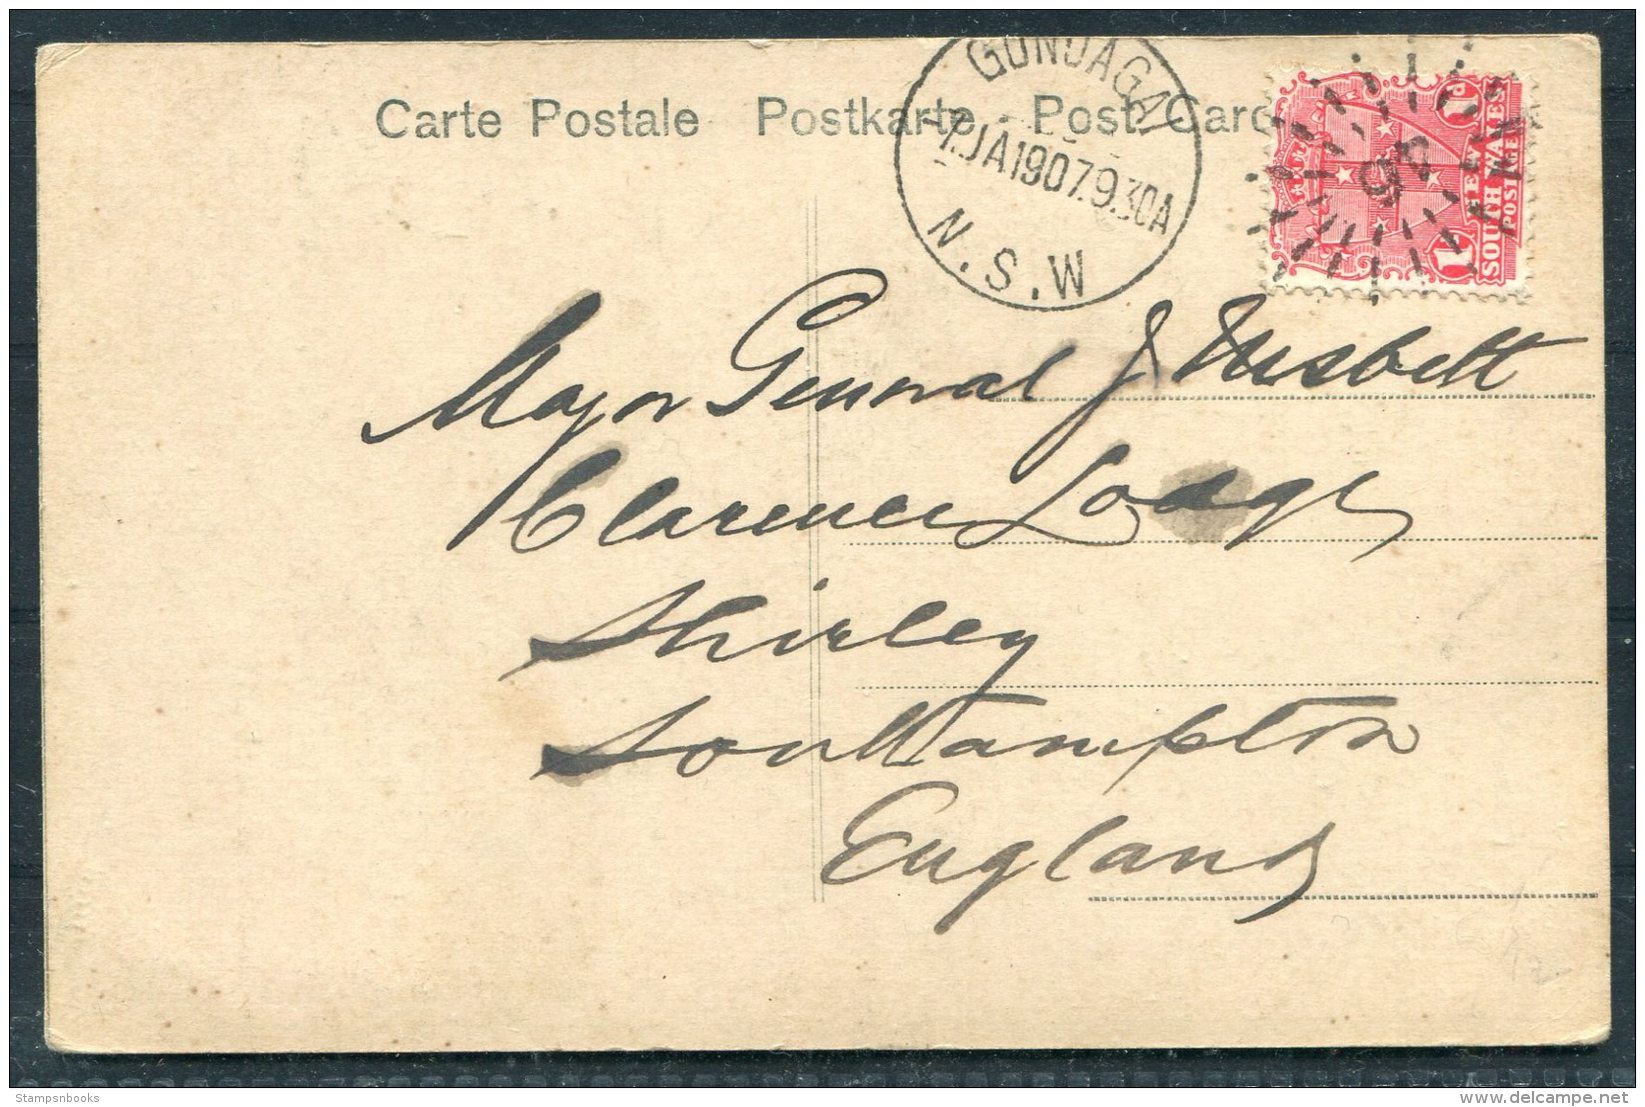 Carte Postale Postkarte Post Card
GUNDAGAI
JA1907.9.30A
N.S.W
NEW SOUTH WALES
POSTAGE
1D
Major General J Nisbett
Clarence Lodge
Shirley
Southampton
England
Stampsnbooks
delcampe.net